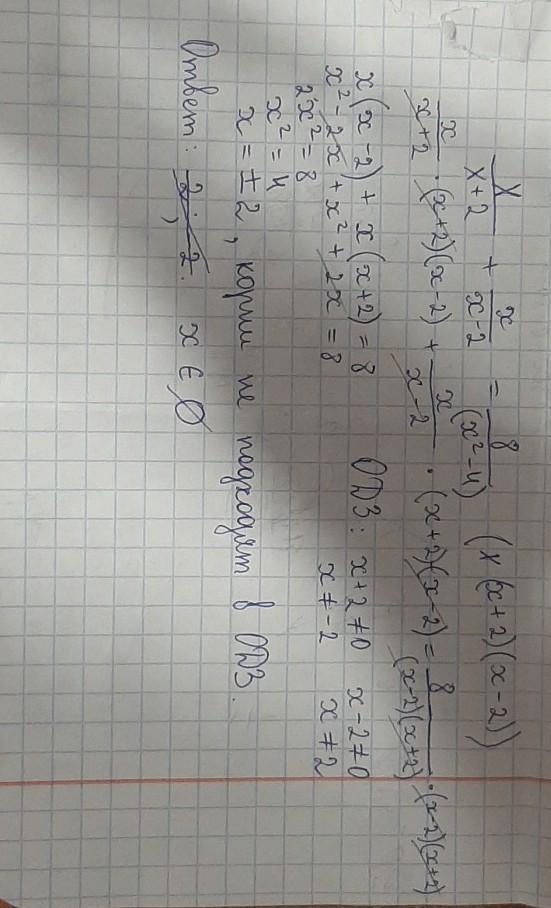 x/(x+2) + x/(x-2) = 8/(x²-4) (x (x+2)(x-2))
x/(x+2) · (x+2)(x-2) + x/(x-2) · (x+2)(x-2) = 8/((x-2)(x+2)) · (x-2)(x+2)
x(x-2) + x(x+2) = 8 ОДЗ: x+2≠0 x-2≠0
x² - 2x + x² + 2x = 8 x≠-2 x≠2
2x² = 8
x² = 4
x = ±2, корни не подходят в ОДЗ.
Ответ: 2; -2. x ∈ ∅